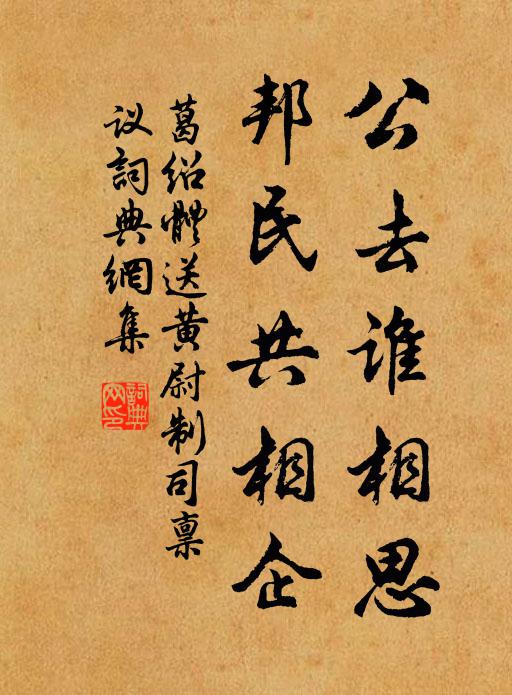 公去谁相思
邦民共相企
葛绍體送黄尉制司禀
议詞典網集
詞典网印